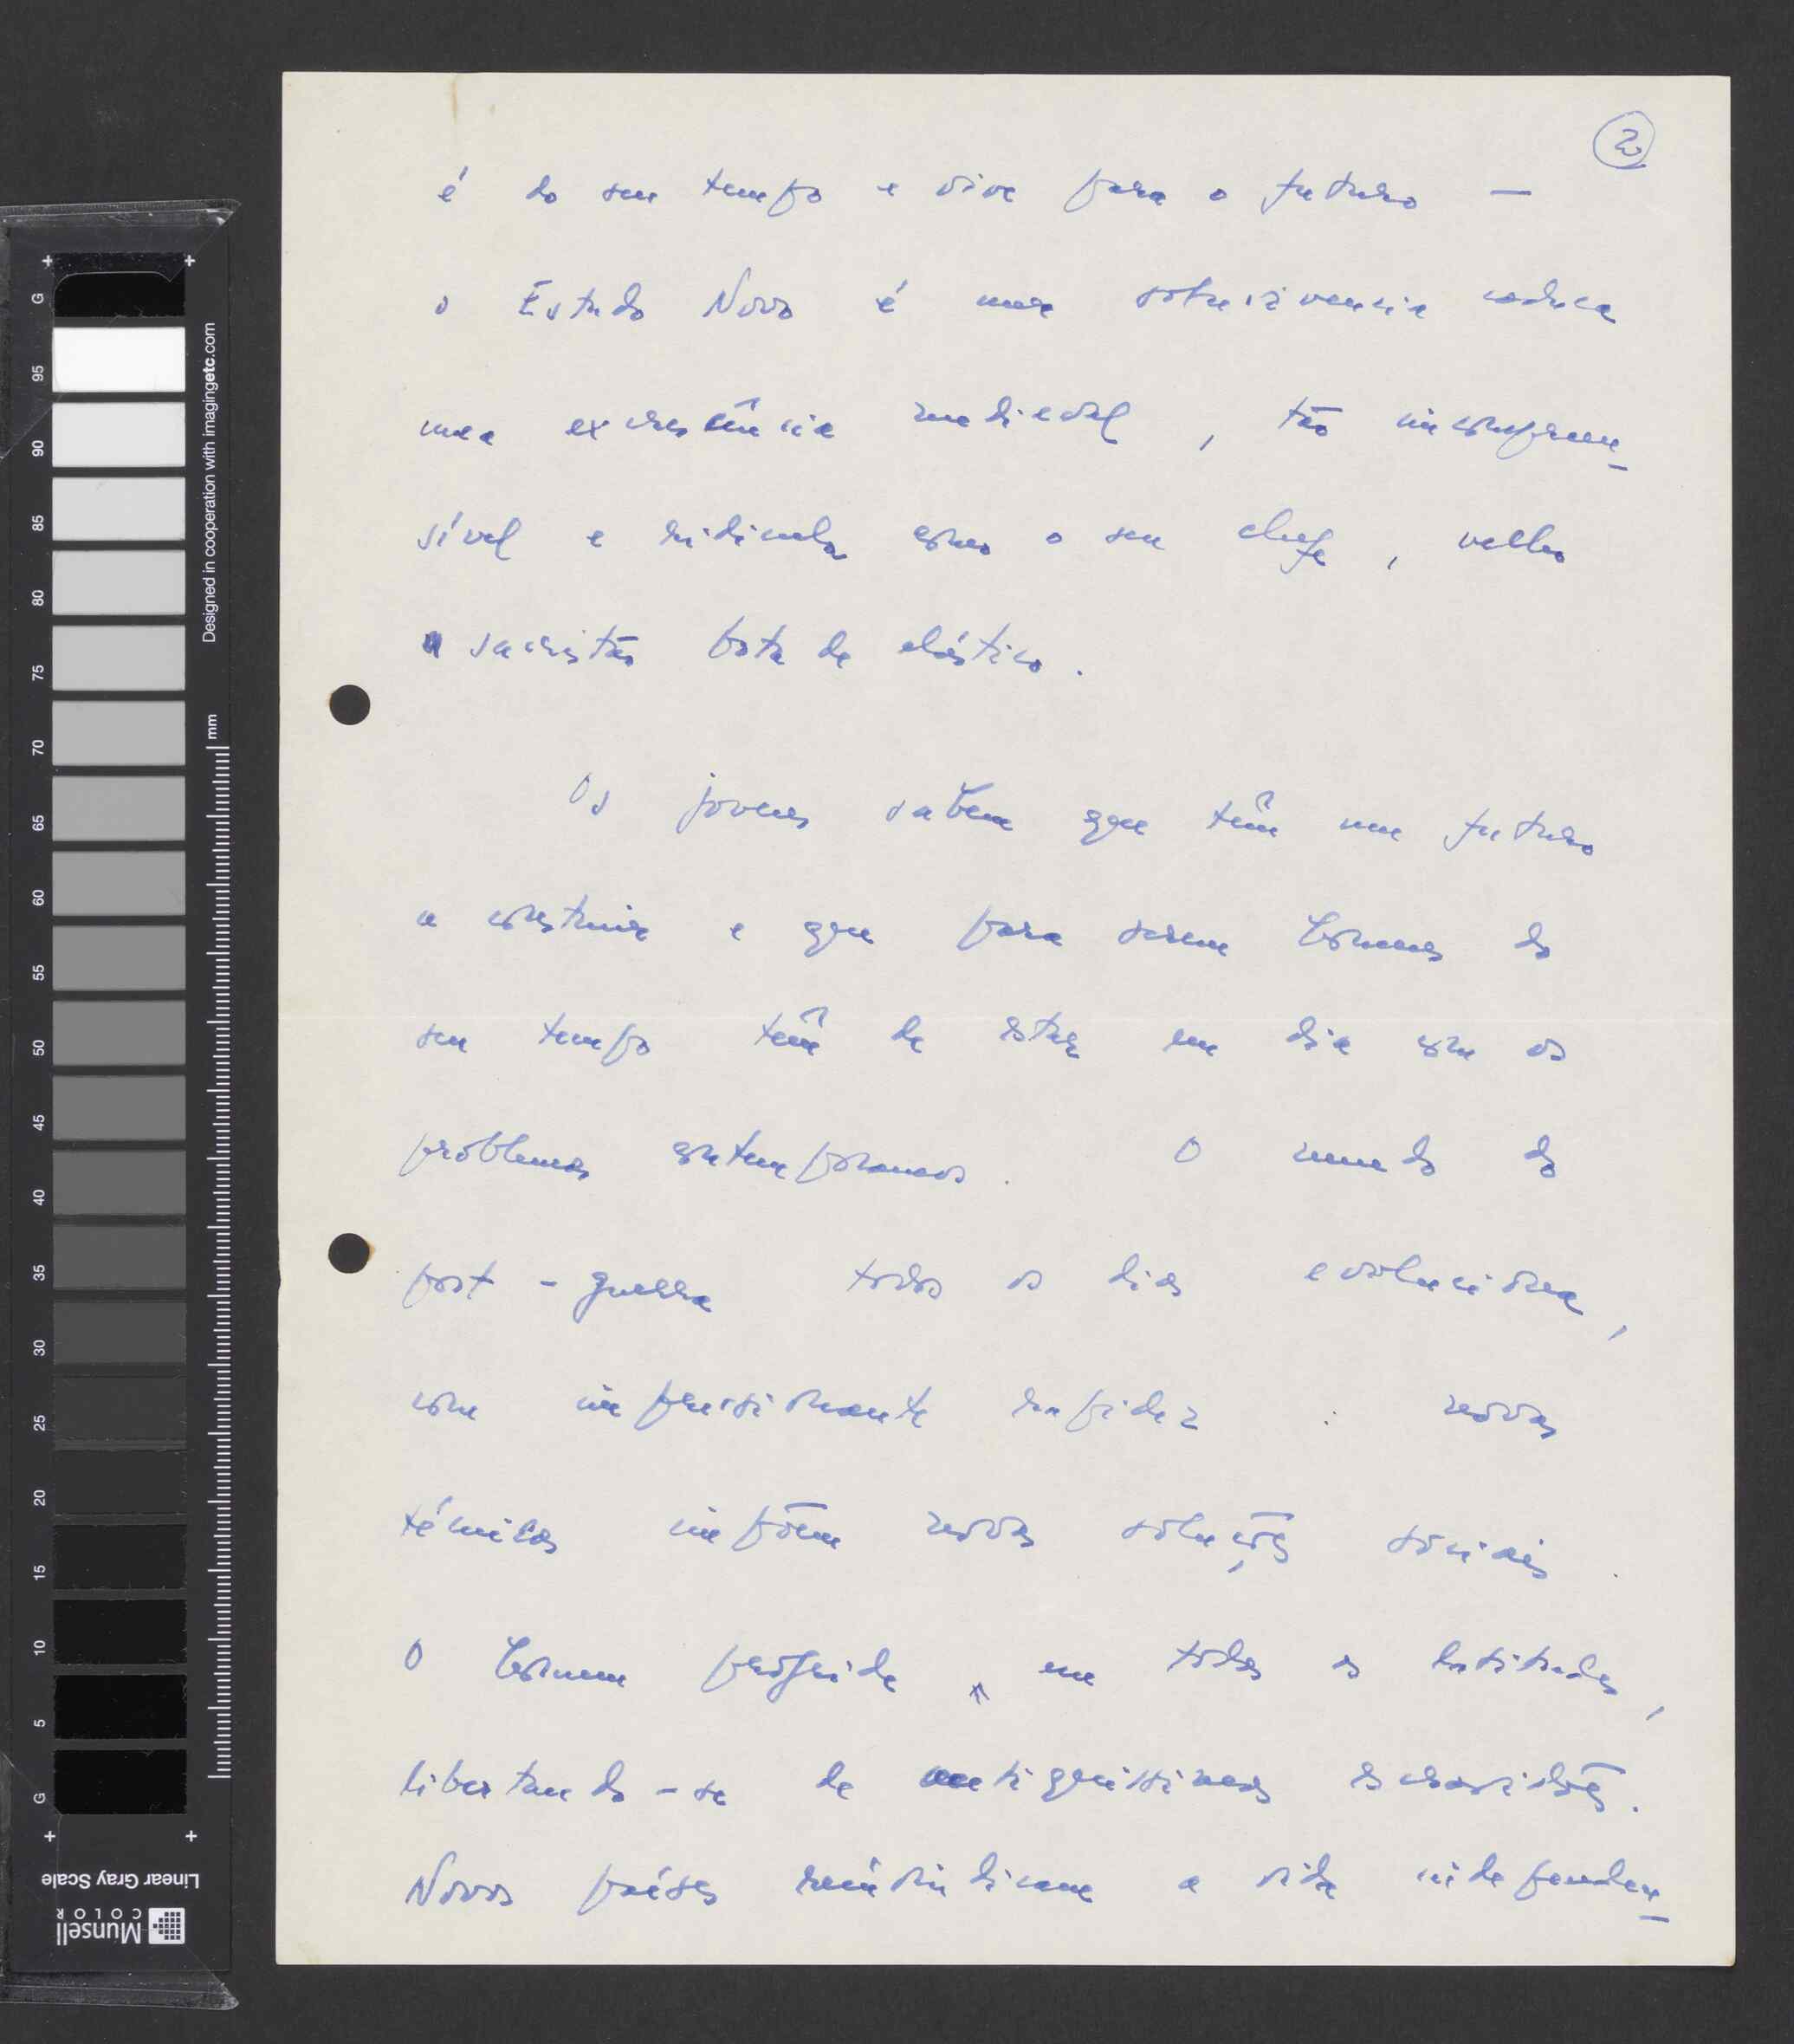 2
é do seu tempo e vive para o futuro —
o Estado Novo é uma sobrevivencia caduca
uma excrescência medieval, tão incompreen-
sível e ridicula como o seu chefe, velho
sacristão bota de elástico.
Os jovens sabem que têm um futuro
a construir e que para serem homens do
seu tempo têm de estar em dia com os
problemas contemporaneos. O mundo do
post-guerra todos os dias evoluciona,
com impressionante rapidez: novas
técnicas impõem novas soluções sociais.
O homem progride, em todas as latitudes,
libertando-se de antiquissimas escravidões.
Novos países reivindicam a vida independen-
G
95
90
85
80
75
70
65
60
55
50
45
40
35
30
25
20
15
10
5
G
Designed in cooperation with imagingetc.com
mm
Linear Gray Scale
Munsell
COLOR